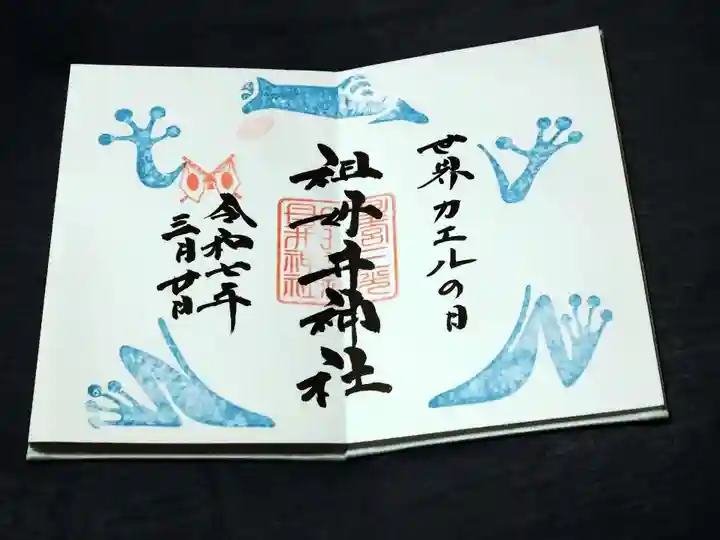 世界カエルの日
祖母井神社
令和七年
三月廿日